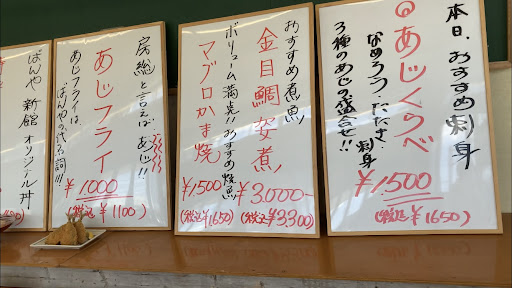 本日、おすすめ刺身
◎あじくらべ
なめろう・たたき・刺身
3種のあじの盛合せ!!
¥1500
(税込¥1650)
おすすめ煮魚
金目鯛姿煮
¥3.000-
(税込¥3.300)
ボリューム満点!!おすすめ焼魚
マグロかま焼
¥1500
(税込¥1650)
房総と言えば あじ!!
あじフライ
あじフライは、
ばんやの代名詞!!!
¥1000
(税込¥1100)
ばんや 新館 オリジナル丼